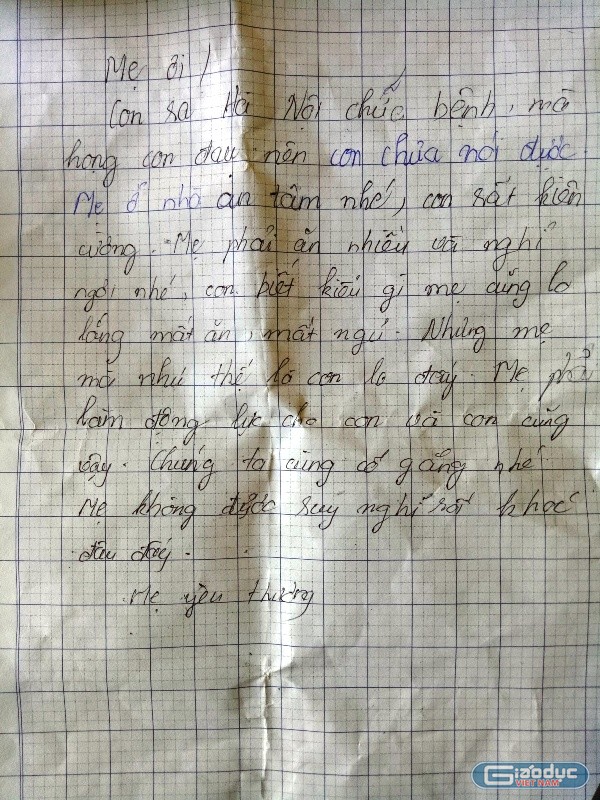 Mẹ ơi!
Con ra Hà Nội chữa bệnh, mà
họng con đau nên con chưa nói được.
Mẹ ở nhà an tâm nhé, con rất kiên
cường. Mẹ phải ăn nhiều và nghỉ
ngơi nhé, con biết kiểu gì mẹ cũng lo
lắng mất ăn, mất ngủ. Nhưng mẹ
mà như thế là con lo đấy. Mẹ phải
làm động lực cho con và con cũng
vậy. Chúng ta cùng cố gắng nhé.
Mẹ không được suy nghĩ rồi khóc
đâu đấy.
Mẹ yêu thương
Giáo dục
VIỆT NAM